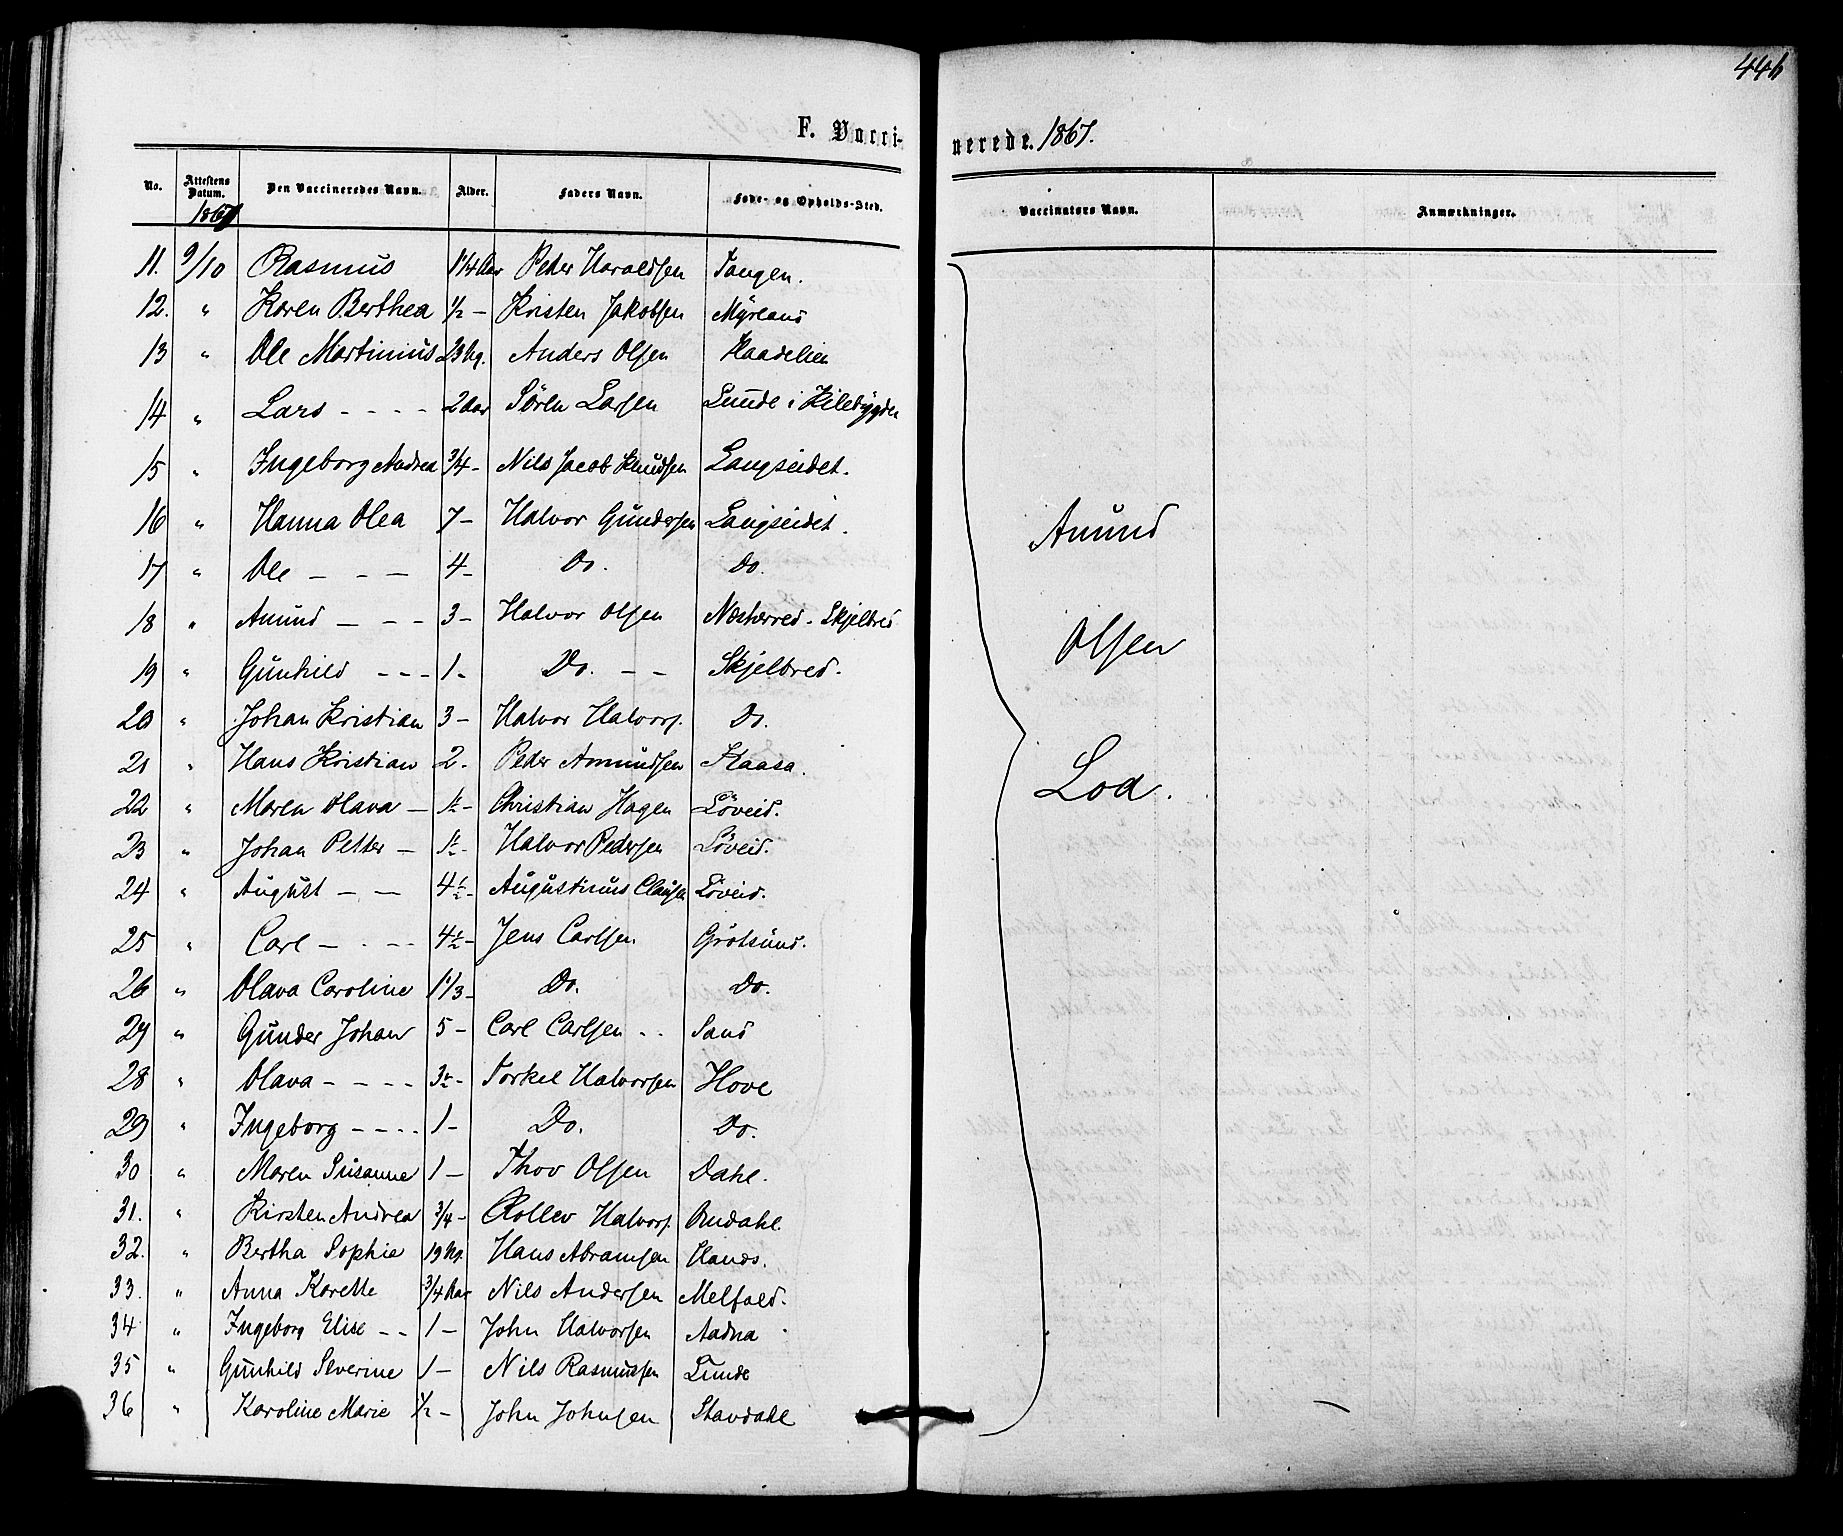 446
F. Vacci-
nerede. 1867.
No. Attestens Datum. Den Vaccineredes Navn. Alder. Faders Navn. Føde- og Opholds-Sted. Vaccinatørs Navn. Anmærkninger.
1867
11. 9/10 Rasmus 1 1/4 Aar Peder Haraldsen Tangen.
12. " Karen Berthea 1/2 - Kristen Jakobsen Myreans
13 " Ole Martinius 23 Ug. Anders Olsen Haadelien
14 " Lars - - - - 2 Aar Sören Larsen Lunde i Kilebygden
15 " Ingeborg Andrea 3/4 - Nils Jacob Knudsen Langseidet.
16 " Hanna Olea 7 - Halvor Gundersen Langseidet.
17 " Ole - - - 4 - Do. Do.
18 " Amund - - - 3 - Halvor Olsen Næsherred. Skjelbred
19 " Gunhild - - - 1 - Do. - - Skjelbred.
20 " Johan Kristian 3 - Halvor Halvors. Do.
21 " Hans Kristian 2 - Peder Amundsen Haasa.
22 " Maren Olava - 1/2 - Christian Hagen Löveid.
23 " Johan Petter - 1/2 - Halvor Pedersen Löveid.
24 " August - - 4 1/2 - Augustinus Clausen Löveid.
25 " Carl - - - - 4 1/2 - Jens Carlsen Grotsund.
26 " Olava Caroline 1 1/3 - Do. Do.
27 " Gunder Johan 5 - Carl Carlsen - - Sand
28 " Olava - - - - 3 1/2 - Torkel Halvorsen Hove
29 " Ingeborg - - - - 1 - Do. Do.
30 " Maren Susanne 1 - Thov Olsen Dahl.
31. " Kirsten Andrea 3/4 - Rollev Halvors. Omdahl.
32. " Bertha Sophie 19 Ug. Hans Abramsen Hands.
33. " Anna Karette 3/4 Aar Nils Andersen Melfald.
34 " Ingeborg Elise - - 1 - John Halvorsen Aadna
35 " Gunhild Severine 1 - Nils Rasmussen Lunde
36 " Karoline Marie 1/2 - John Johnsen Stavdahl
Amund
Olsen
Loa.